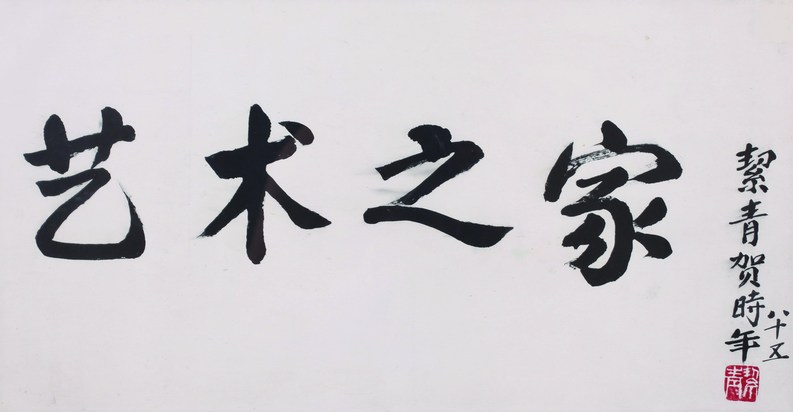 艺术之家
絜青贺時年
八十五
絜青